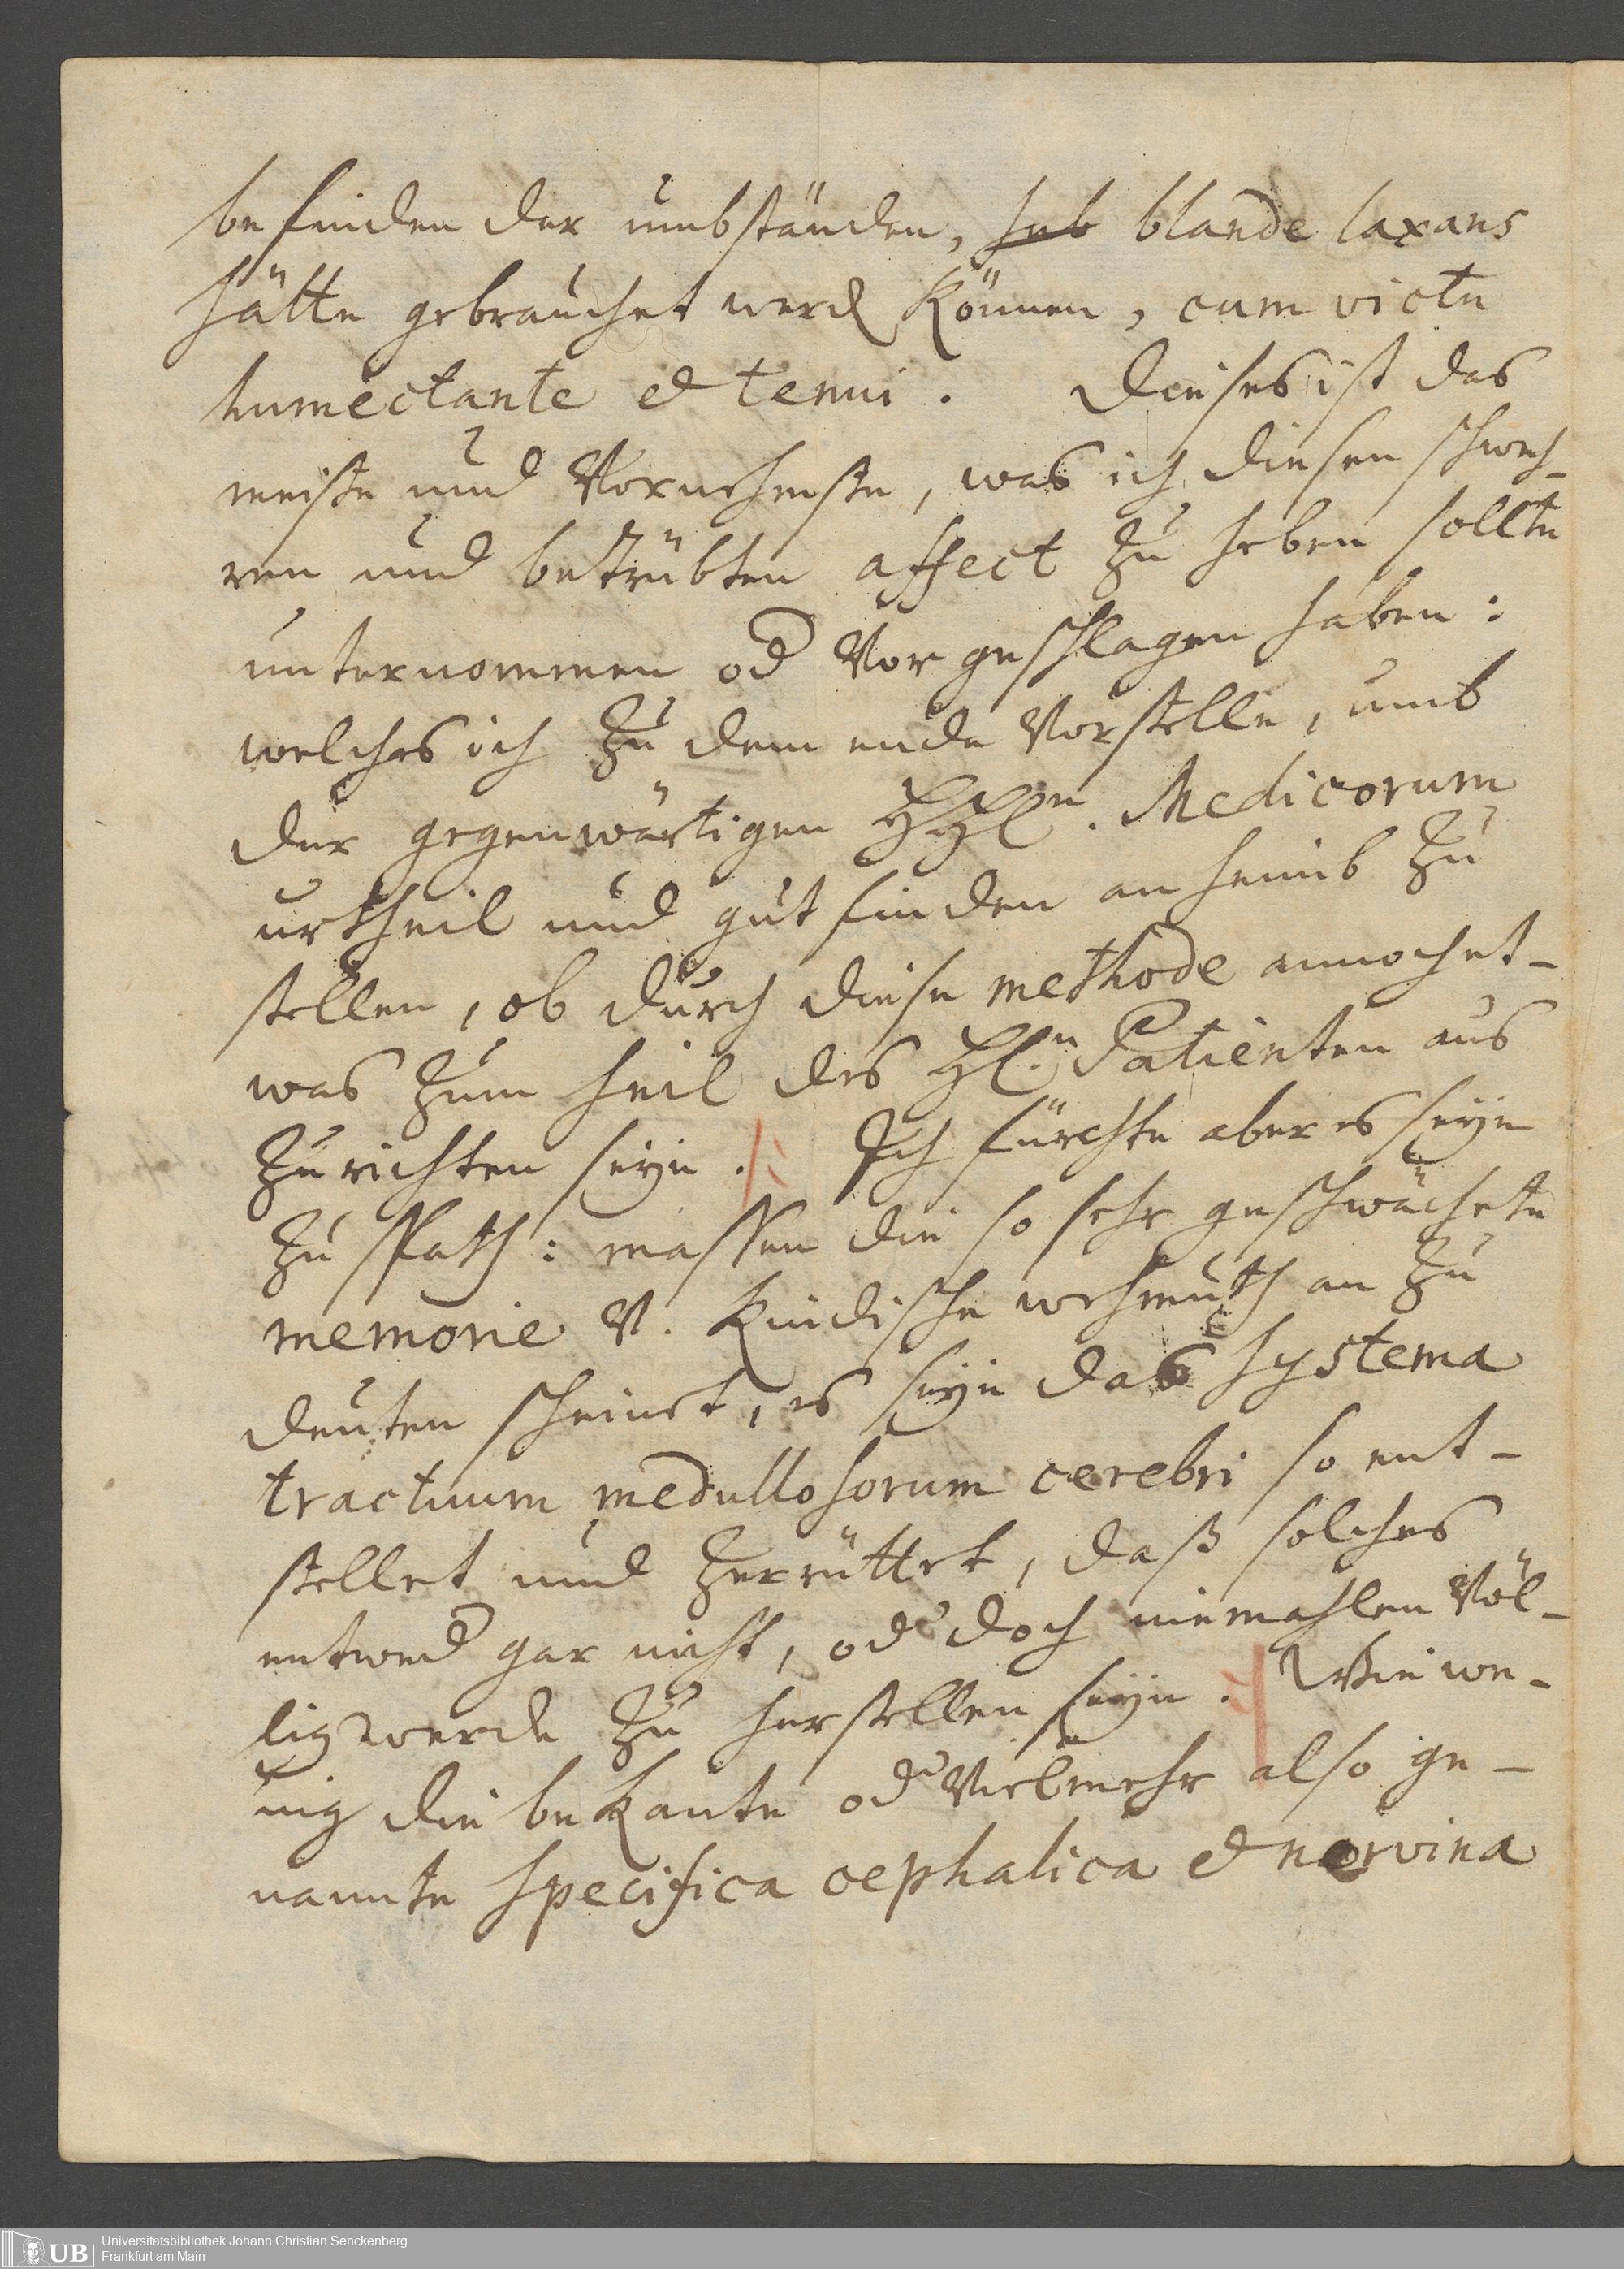 befinden der umbständen, hab blande laxans
hätte gebrauchet werd können, cum victu
humectante et tenui. Dieses ist das
meiste und Vornehmste, was ich diesen schweh-
ren und betrübten affect zu heben sollte
unternommen od Vorgeschlagen haben:
welches ich zu dem ende Vorstelle, umb
der gegenwärtigen HHln. Medicorum
urtheil und gutfinden anheimb zu
stellen, ob durch diese methode annoch et-
was zum heil des Hln. Patienten aus
zurichten seye. Ich fürchte aber es seye
zu spath: massen die so sehr geschwächte
memorie V. Kindische wehmuth an zu
deuten scheinet, es seye das Systema
tractuum medullosorum cerebri so ent-
stellet und zerrüttet, daß solches
entwed gar nicht, od doch niemahlen Völ-
lig werde zu herstellen seye. Wie we-
nig die bekante od Vielmehr also ge-
nannte Specifica cephalica et nervina
Universitätsbibliothek Johann Christian Senckenberg
Frankfurt am Main
UB